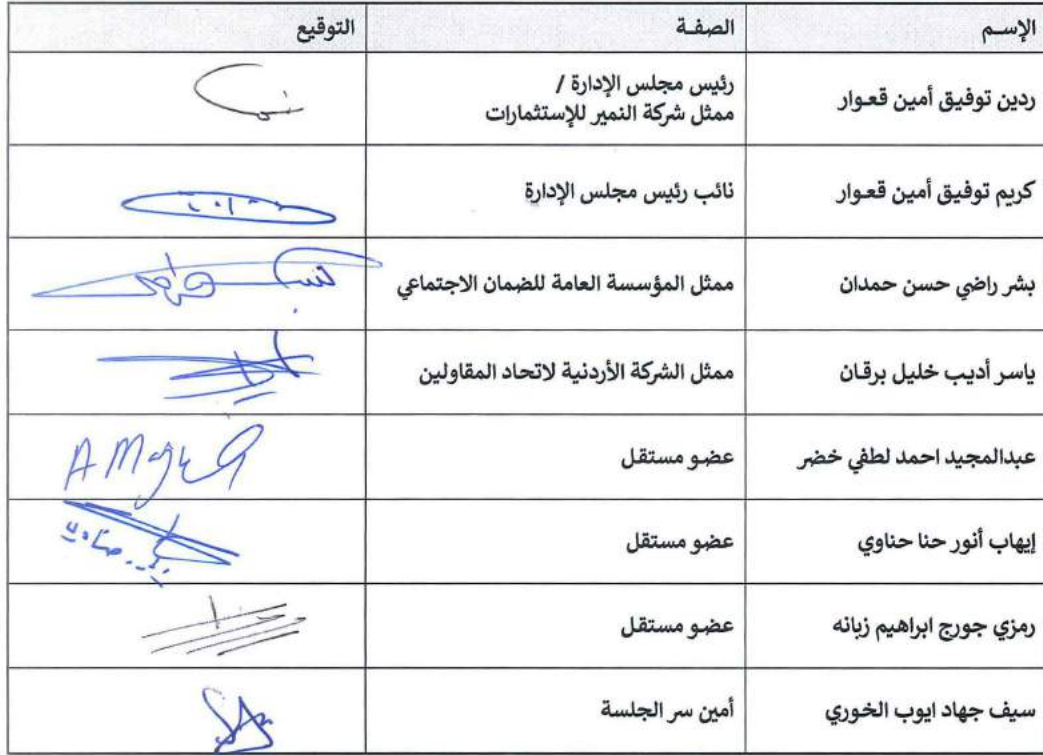 الإسـم الصفـة التوقيع
ردين توفيق أمين قعـوار رئيس مجلس الإدارة /
ممثل شركة النمير للإستثمارات
كريم توفيق أمين قعـوار نائب رئيس مجلس الإدارة
بشر راضي حسن حمدان ممثل المؤسسة العامة للضمان الاجتماعي
ياسر أديب خليل برقـان ممثل الشركة الأردنية لاتحاد المقاولين
عبدالمجيد احمد لطفي خضر عضـو مستقل
إيهاب أنور حنا حناوي عضـو مستقل
رمزي جورج ابراهيم زبانه عضـو مستقل
سيف جهاد ايوب الخوري أمين سر الجلسة